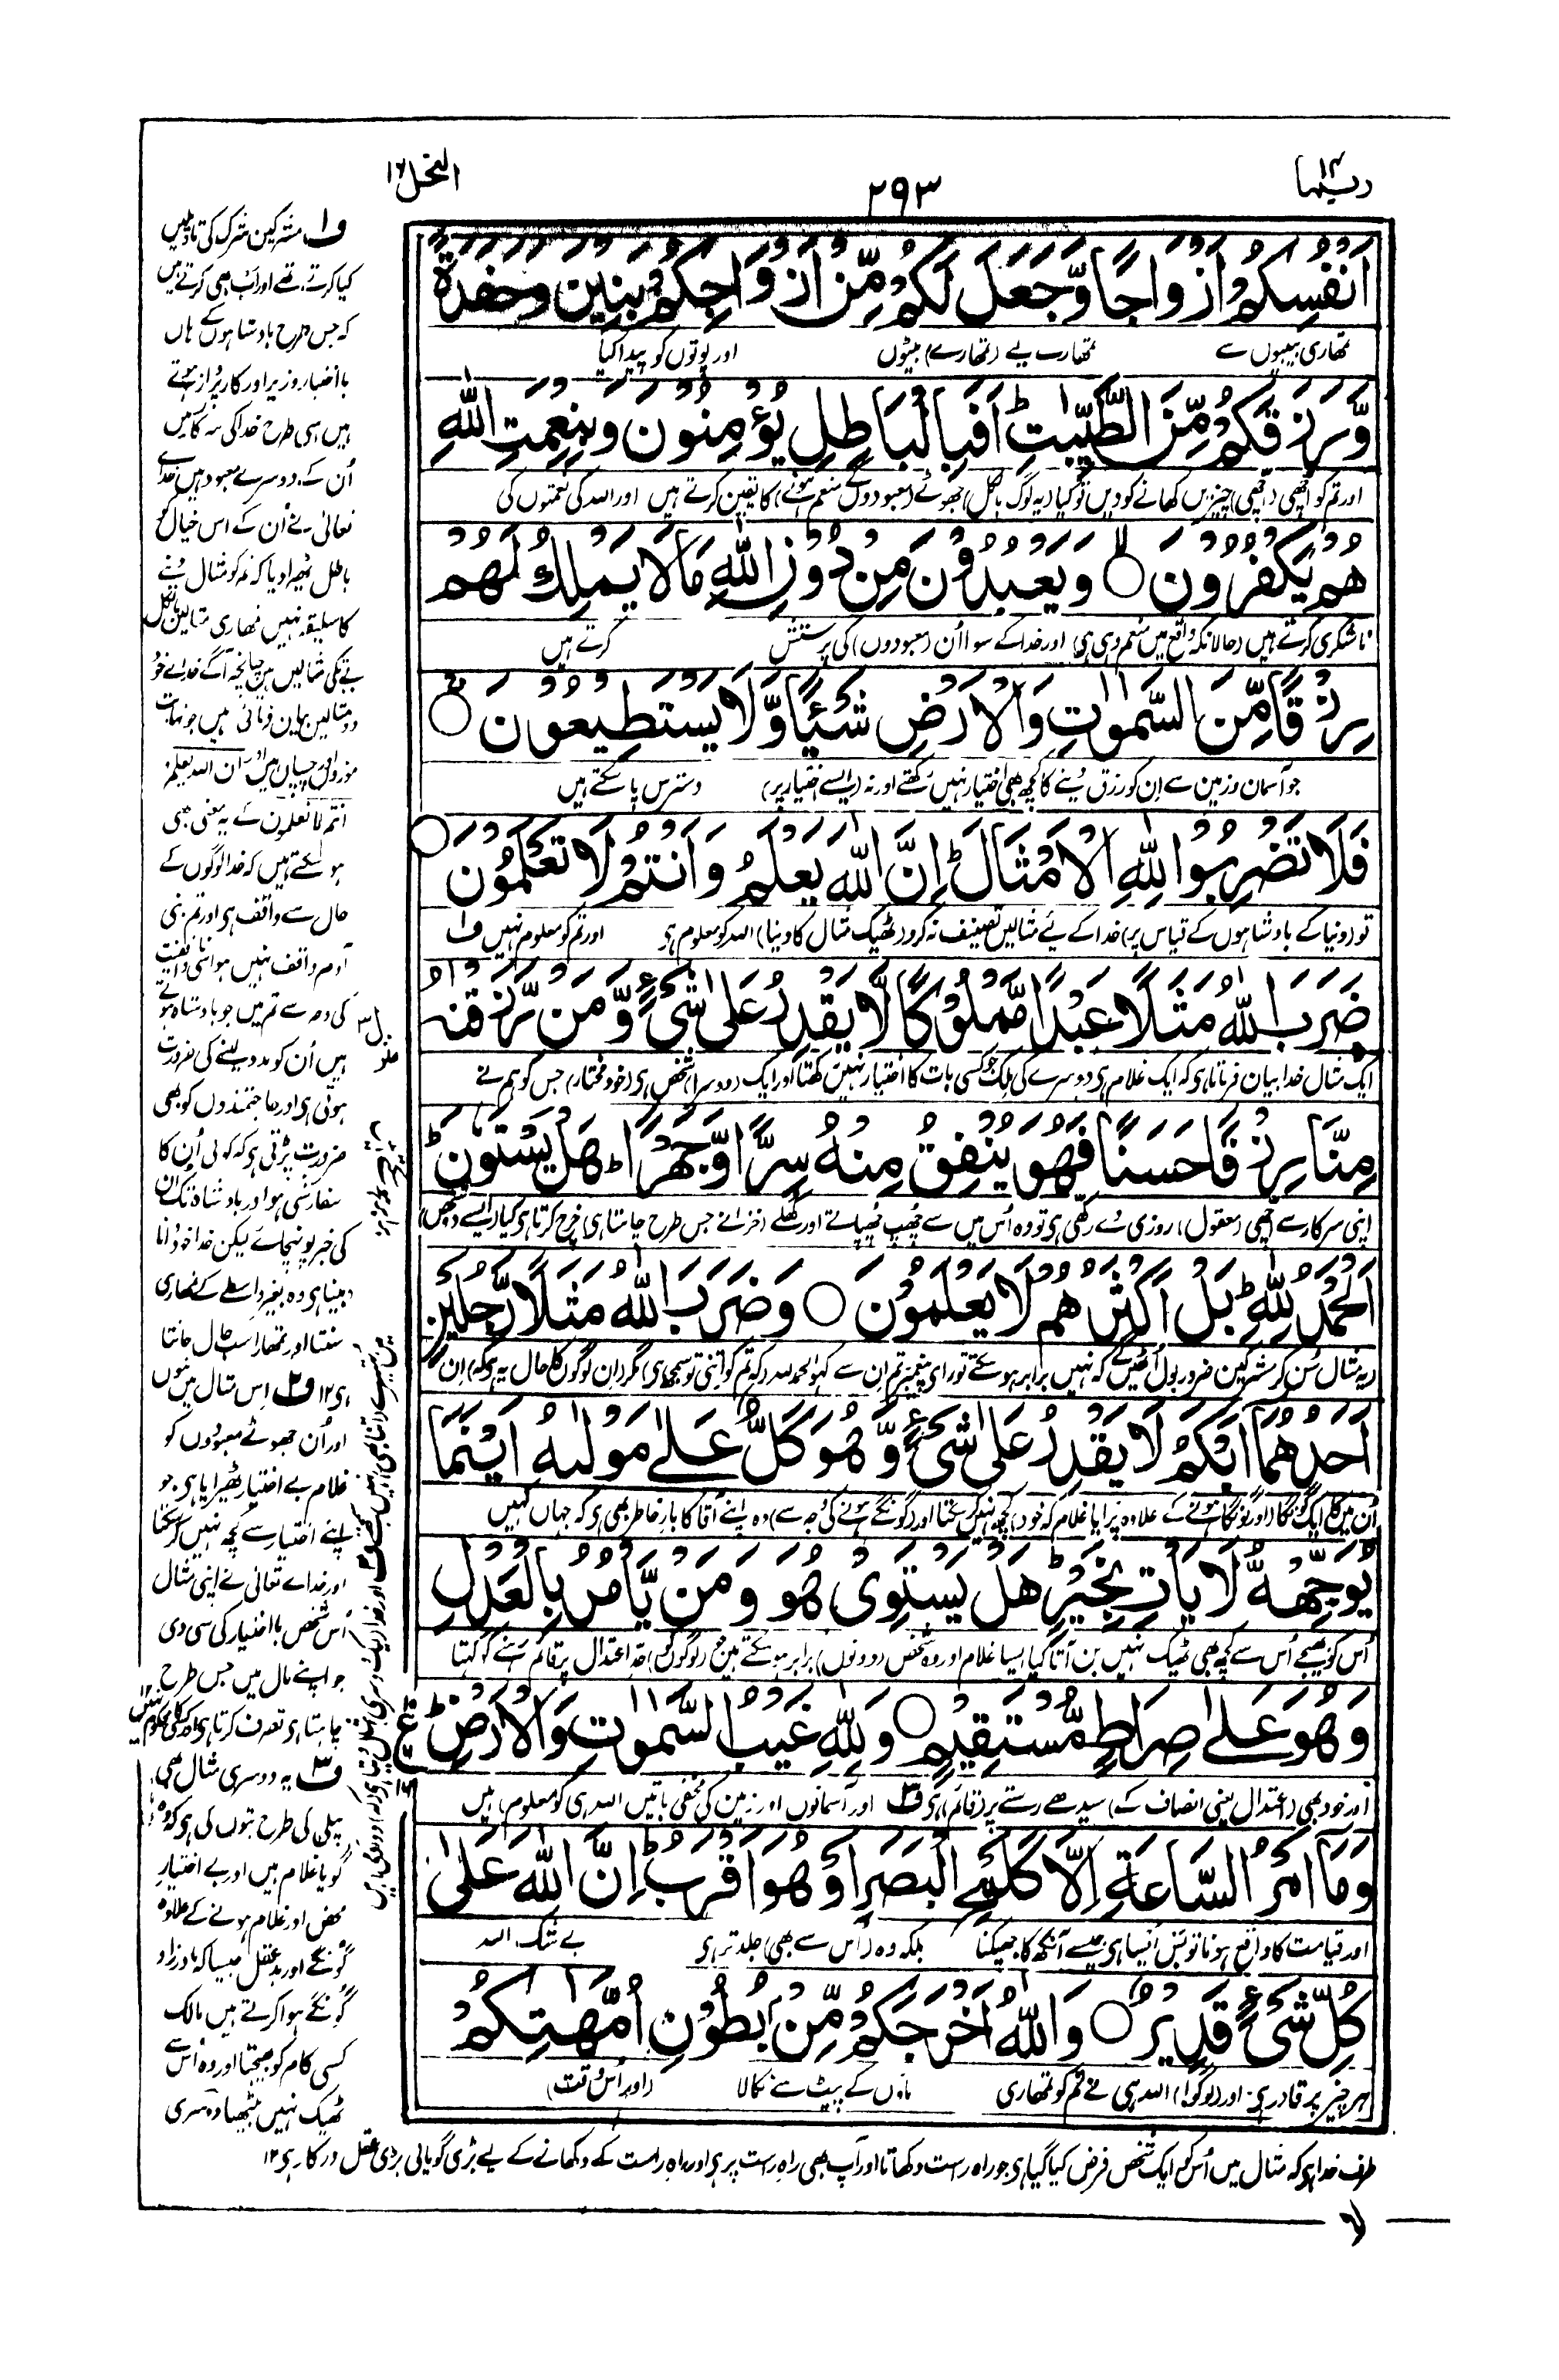 ربما ۱۴
۲۹۳
النحل ۱۶
اَنْفُسِكُمْ اَزْوَاجًا وَّجَعَلَ لَكُمْ مِّنْ اَزْوَاجِكُمْ بَنِيْنَ وَحَفَدَةً
تمھاری بیبیوں سے تمھارے لیے (تمھارے) بیٹوں اور پوتوں کو پیدا کیا
وَّرَزَقَكُمْ مِّنَ الطَّيِّبٰتِ ؕ اَفَبِالْبَاطِلِ يُؤْمِنُوْنَ وَبِنِعْمَتِ اللّٰهِ
اور تم کو اچھی (اچھی) چیزیں کھانے کو دیں تو کیا (یہ لوگ بالکل) جھوٹے (معبودوں کے منعم ہونے) کا یقین کرتے ہیں اور اللہ کی نعمتوں کی
هُمْ يَكْفُرُوْنَ ۝ وَيَعْبُدُوْنَ مِنْ دُوْنِ اللّٰهِ مَا لَا يَمْلِكُ لَهُمْ
ناشکری کرتے ہیں (حالانکہ واقع میں منعم وہی ہی) اور خدا کے سوا اُن (معبودوں) کی پرستش کرتے ہیں
رِزْقًا مِّنَ السَّمٰوٰتِ وَالْاَرْضِ شَيْـًٔا وَّلَا يَسْتَطِيْعُوْنَ ۝
جو آسمان و زمین سے اِن کو رزق دینے کا کچھ بھی اختیار نہیں رکھتے اور نہ (ایسے اختیار پر) دسترس پا سکتے ہیں
فَلَا تَضْرِبُوْا لِلّٰهِ الْاَمْثَالَ ؕ اِنَّ اللّٰهَ يَعْلَمُ وَاَنْتُمْ لَا تَعْلَمُوْنَ ۝
تو (دنیا کے بادشاہوں کے قیاس پر) خدا کے لیے مثالیں تصنیف نہ کرو (ٹھیک مثال کا دینا) اللہ کو معلوم ہی اور تم کو معلوم نہیں ف۱
ضَرَبَ اللّٰهُ مَثَلًا عَبْدًا مَّمْلُوْكًا لَّا يَقْدِرُ عَلٰى شَيْءٍ وَّمَنْ رَّزَقْنٰهُ
ایک مثال خدا بیان فرماتا ہی کہ ایک غلام ہی دوسرے کی ملک جو کسی بات کا اختیار نہیں رکھتا اور ایک (دوسرا) شخص ہی (خود مختار) جس کو ہم نے
مِنَّا رِزْقًا حَسَنًا فَهُوَ يُنْفِقُ مِنْهُ سِرًّا وَّجَهْرًا ؕ هَلْ يَسْتَوٗنَ ؕ
اپنی سرکار سے اچھی (معقول) روزی دے رکھی ہی تو وہ اُس میں سے چھپے چھپاتے اور کھلے (خزانے جس طرح چاہتا ہی) خرچ کرتا ہی کیا (ایسے دو شخص)
اَلْحَمْدُ لِلّٰهِ ؕ بَلْ اَكْثَرُهُمْ لَا يَعْلَمُوْنَ ۝ وَضَرَبَ اللّٰهُ مَثَلًا رَّجُلَيْنِ
(یہ مثال سُن کر مشرکین ضرور بول اُٹھیں گے کہ نہیں برابر ہو سکتے تو اے پیغمبر تم اِن سے کہو الحمد للہ
اَحَدُهُمَآ اَبْكَمُ لَا يَقْدِرُ عَلٰى شَيْءٍ وَّهُوَ كَلٌّ عَلٰى مَوْلٰىهُ اَيْنَمَا
اُن میں کا ایک گونگا (اور گونگا ہونے کے علاوہ پرایا غلام کہ خود) کچھ نہیں کر سکتا اور (گونگے ہونے کی وجہ سے) وہ اپنے آقا کا بارِ خاطر بھی ہی کہ جہاں کہیں
يُوَجِّهْهُّ لَا يَاْتِ بِخَيْرٍ ؕ هَلْ يَسْتَوِيْ هُوَ وَمَنْ يَّاْمُرُ بِالْعَدْلِ
اُس کو بھیجے اُس سے کچھ بھی ٹھیک نہیں بن آتا کیا ایسا غلام اور وہ شخص (دونوں) برابر ہو سکتے ہیں جو (لوگوں کو) حدِّ اعتدال پر قائم رہنے کو کہتا
وَهُوَ عَلٰى صِرَاطٍ مُّسْتَقِيْمٍ ۝ وَلِلّٰهِ غَيْبُ السَّمٰوٰتِ وَالْاَرْضِ ؕ
اور خود بھی (اعتدال یعنی انصاف کے) سیدھے رستے پر (قائم) ہی ف۳ اور آسمانوں اور زمین کی مخفی باتیں اللہ ہی کو (معلوم) ہیں
وَمَآ اَمْرُ السَّاعَةِ اِلَّا كَلَمْحِ الْبَصَرِ اَوْ هُوَ اَقْرَبُ ؕ اِنَّ اللّٰهَ عَلٰى
اور قیامت کا واقع ہونا تو بس ایسا ہی جیسے آنکھ کا جھپکنا بلکہ وہ (اُس سے بھی) جلد تر ہی بے شک اللہ
كُلِّ شَيْءٍ قَدِيْرٌ ۝ وَاللّٰهُ اَخْرَجَكُمْ مِّنْۢ بُطُوْنِ اُمَّهٰتِكُمْ
ہر چیز پر قادر ہی اور (لوگو) اللہ ہی نے تم کو تمھاری ماؤں کے پیٹ سے نکالا (اور اُس وقت)
ف۱ مشرکین شرک کی تاویلیں
کیا کرتے تھے اور اب بھی کرتے ہیں
کہ جس طرح بادشاہوں کے ہاں
با اختیار وزیر اور کارپرداز ہوتے
ہیں اسی طرح خدا کی
اُن کے دوسرے معبود ہیں خدائے
تعالیٰ نے اُن کے اس خیال کو
باطل ٹھیرا دیا کہ تم کو مثال دینے
کا سلیقہ نہیں تمھاری مثالیں بالکل
بے تکی مثالیں ہیں چنانچہ آگے خدا نے خود
دو مثالیں بیان فرمائی ہیں جو نہایت
موزوں اور چسپاں ہیں اور ان اللہ یعلم و
انتم لا تعلمون کے یہ معنی بھی
ہو سکتے ہیں کہ خدا لوگوں کے
حال سے واقف ہی اور تم بنی
آدم واقف نہیں ہو اسی ناواقفیت
کی وجہ سے تم میں جو بادشاہ ہوتے
ہیں اُن کو مدد لینے کی ضرورت
ہوتی ہی اور حاجتمندوں کو بھی
ضرورت پڑتی ہی کہ کوئی اُن کا
سفارشی ہو اور بادشاہ تک اُن
کی خبر پونہچائے لیکن خدا خود دانا
و بینا ہی وہ بغیر واسطے کے تمھاری
سنتا اور تمھارا سب حال جانتا
ہی ۱۲ ف۲ اِس مثال میں بتوں
اور اُن جھوٹے معبودوں کو
غلام بے اختیار ٹھیرایا ہی جو
اپنے اختیار سے کچھ نہیں کر سکتا
اور خدائے تعالیٰ نے اپنی مثال
اُس شخص با اختیار کی سی دی
جو اپنے مال میں جس طرح
چاہتا ہی تصرف کرتا ہی
ف۳ یہ دوسری مثال بھی
پہلی کی طرح بتوں کی ہی کہ وہ
گویا غلام ہیں اور بے اختیار
محض اور غلام ہونے کے علاوہ
گونگے اور بدعقل جیسا کہ مادرزاد
گونگے ہوا کرتے ہیں مالک
کسی کام کو بھیجتا اور وہ اُس سے
ٹھیک نہیں بیٹھتا دوسری
منزل ۳
طرف خدا ہی کہ مثال میں اُس کو ایک شخص فرض کیا گیا ہی جو راہِ راست دکھاتا اور آپ بھی راہِ راست پر ہی اور راہِ راست کے دکھانے کے لیے بڑی گویائی بڑی عقل درکار ہی ۱۲